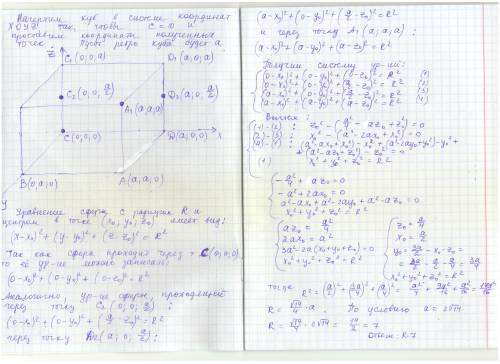 Начертим куб в системе координат
XOYZ так, чтобы C = O и
проставим координаты полученных
точек. Пусть ребро куба будет a.
Z
C₁(0;0;a)
D₁(a;0;a)
C₂(0;0;a/2)
A₁(a;a;a)
D₂(a;0;a/2)
C(0;0;0)
D(a;0;0)
x
B(0;a;0)
A(a;a;0)
Y
Уравнение сферы с радиусом R и
центром в точке (x₀; y₀; z₀) имеет вид:
(x-x₀)²+(y-y₀)²+(z-z₀)²=R²
Так как сфера проходит через т. C(0;0;0)
то её ур-ие можно записать:
(0-x₀)²+(0-y₀)²+(0-z₀)²=R²
Аналогично, ур-ие сферы, проходящей
через точку C₂(0;0;a/2):
(0-x₀)²+(0-y₀)²+(a/2-z₀)²=R²
через точку D₂(a;0;a/2):
(a-x₀)²+(0-y₀)²+(a/2-z₀)²=R²
и через точку A₁(a;a;a):
(a-x₀)²+(a-y₀)²+(a-z₀)²=R²
Получили систему ур-ий:
(0-x₀)²+(0-y₀)²+(0-z₀)²=R² (1)
(0-x₀)²+(0-y₀)²+(a/2-z₀)²=R² (2)
(a-x₀)²+(0-y₀)²+(a/2-z₀)²=R² (3)
(a-x₀)²+(a-y₀)²+(a-z₀)²=R² (4)
x₀²+y₀²+z₀²=R²
-a²/4+az₀=0
-a²+2ax₀=0
x₀²+y₀²+z₀²=R²
az₀=a²/4
2ax₀=a²
3a²-2a(x₀+y₀+z₀)=0
x₀²+y₀²+z₀²=R²
z₀=a/4
x₀=a/2
y₀=3a/2-x₀-z₀=
=3a/2-a/2-a/4=3a/4
x₀²+y₀²+z₀²=R²
Тогда R²=(a/2)²+(3a/4)²+(a/4)²=a²/4+9a²/16+a²/16=14a²/16
R=√14/4·a. По условию a=2√14
R=√14/4·2√14=14/2=7
Ответ: R=7